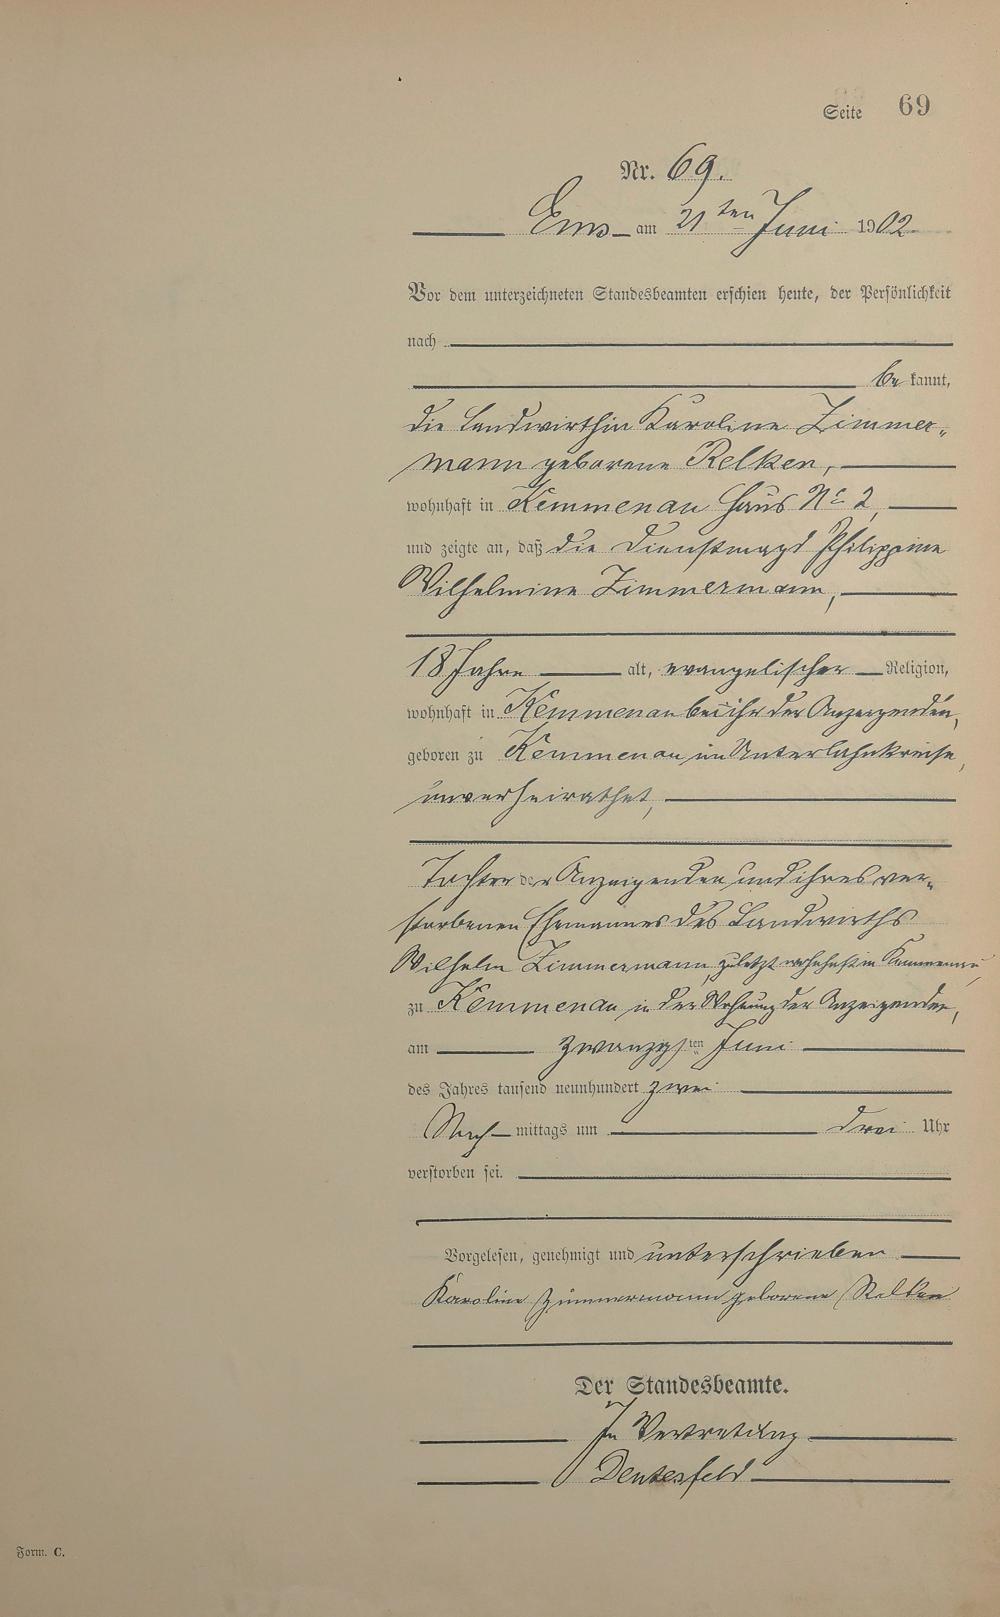 Seite 69
Nr. 69.
Ems am 21ten Juni 1902
Vor dem unterzeichneten Standesbeamten erschien heute, der Persönlichkeit
nach
be kannt,
die Landwirthin Karoline Zimmer-
mann geborene Relken,
wohnhaft in Kemmenau Haus No 2,
und zeigte an, daß die Dienstmagd Philippine
Wilhelmine Zimmermann,
18 Jahre alt, evangelischer Religion,
wohnhaft in Kemmenau bei ihr der Anzeigenden,
geboren zu Kemmenau im Unterlahnkreise,
unverheirathet,
Tochter der Anzeigenden und ihres ver-
storbenen Ehemannes des Landwirths
Wilhelm Zimmermann, zuletzt wohnhaft in Kemmenau,
zu Kemmenau in der Wohnung der Anzeigenden,
am zwanzigsten Juni
des Jahres tausend neunhundert zwei
Nach mittags um drei Uhr
verstorben sei.
Vorgelesen, genehmigt und unterschrieben
Karoline Zimmermann geborene Relken
Der Standesbeamte.
In Vertretung
Deutesfeld
Form. C.